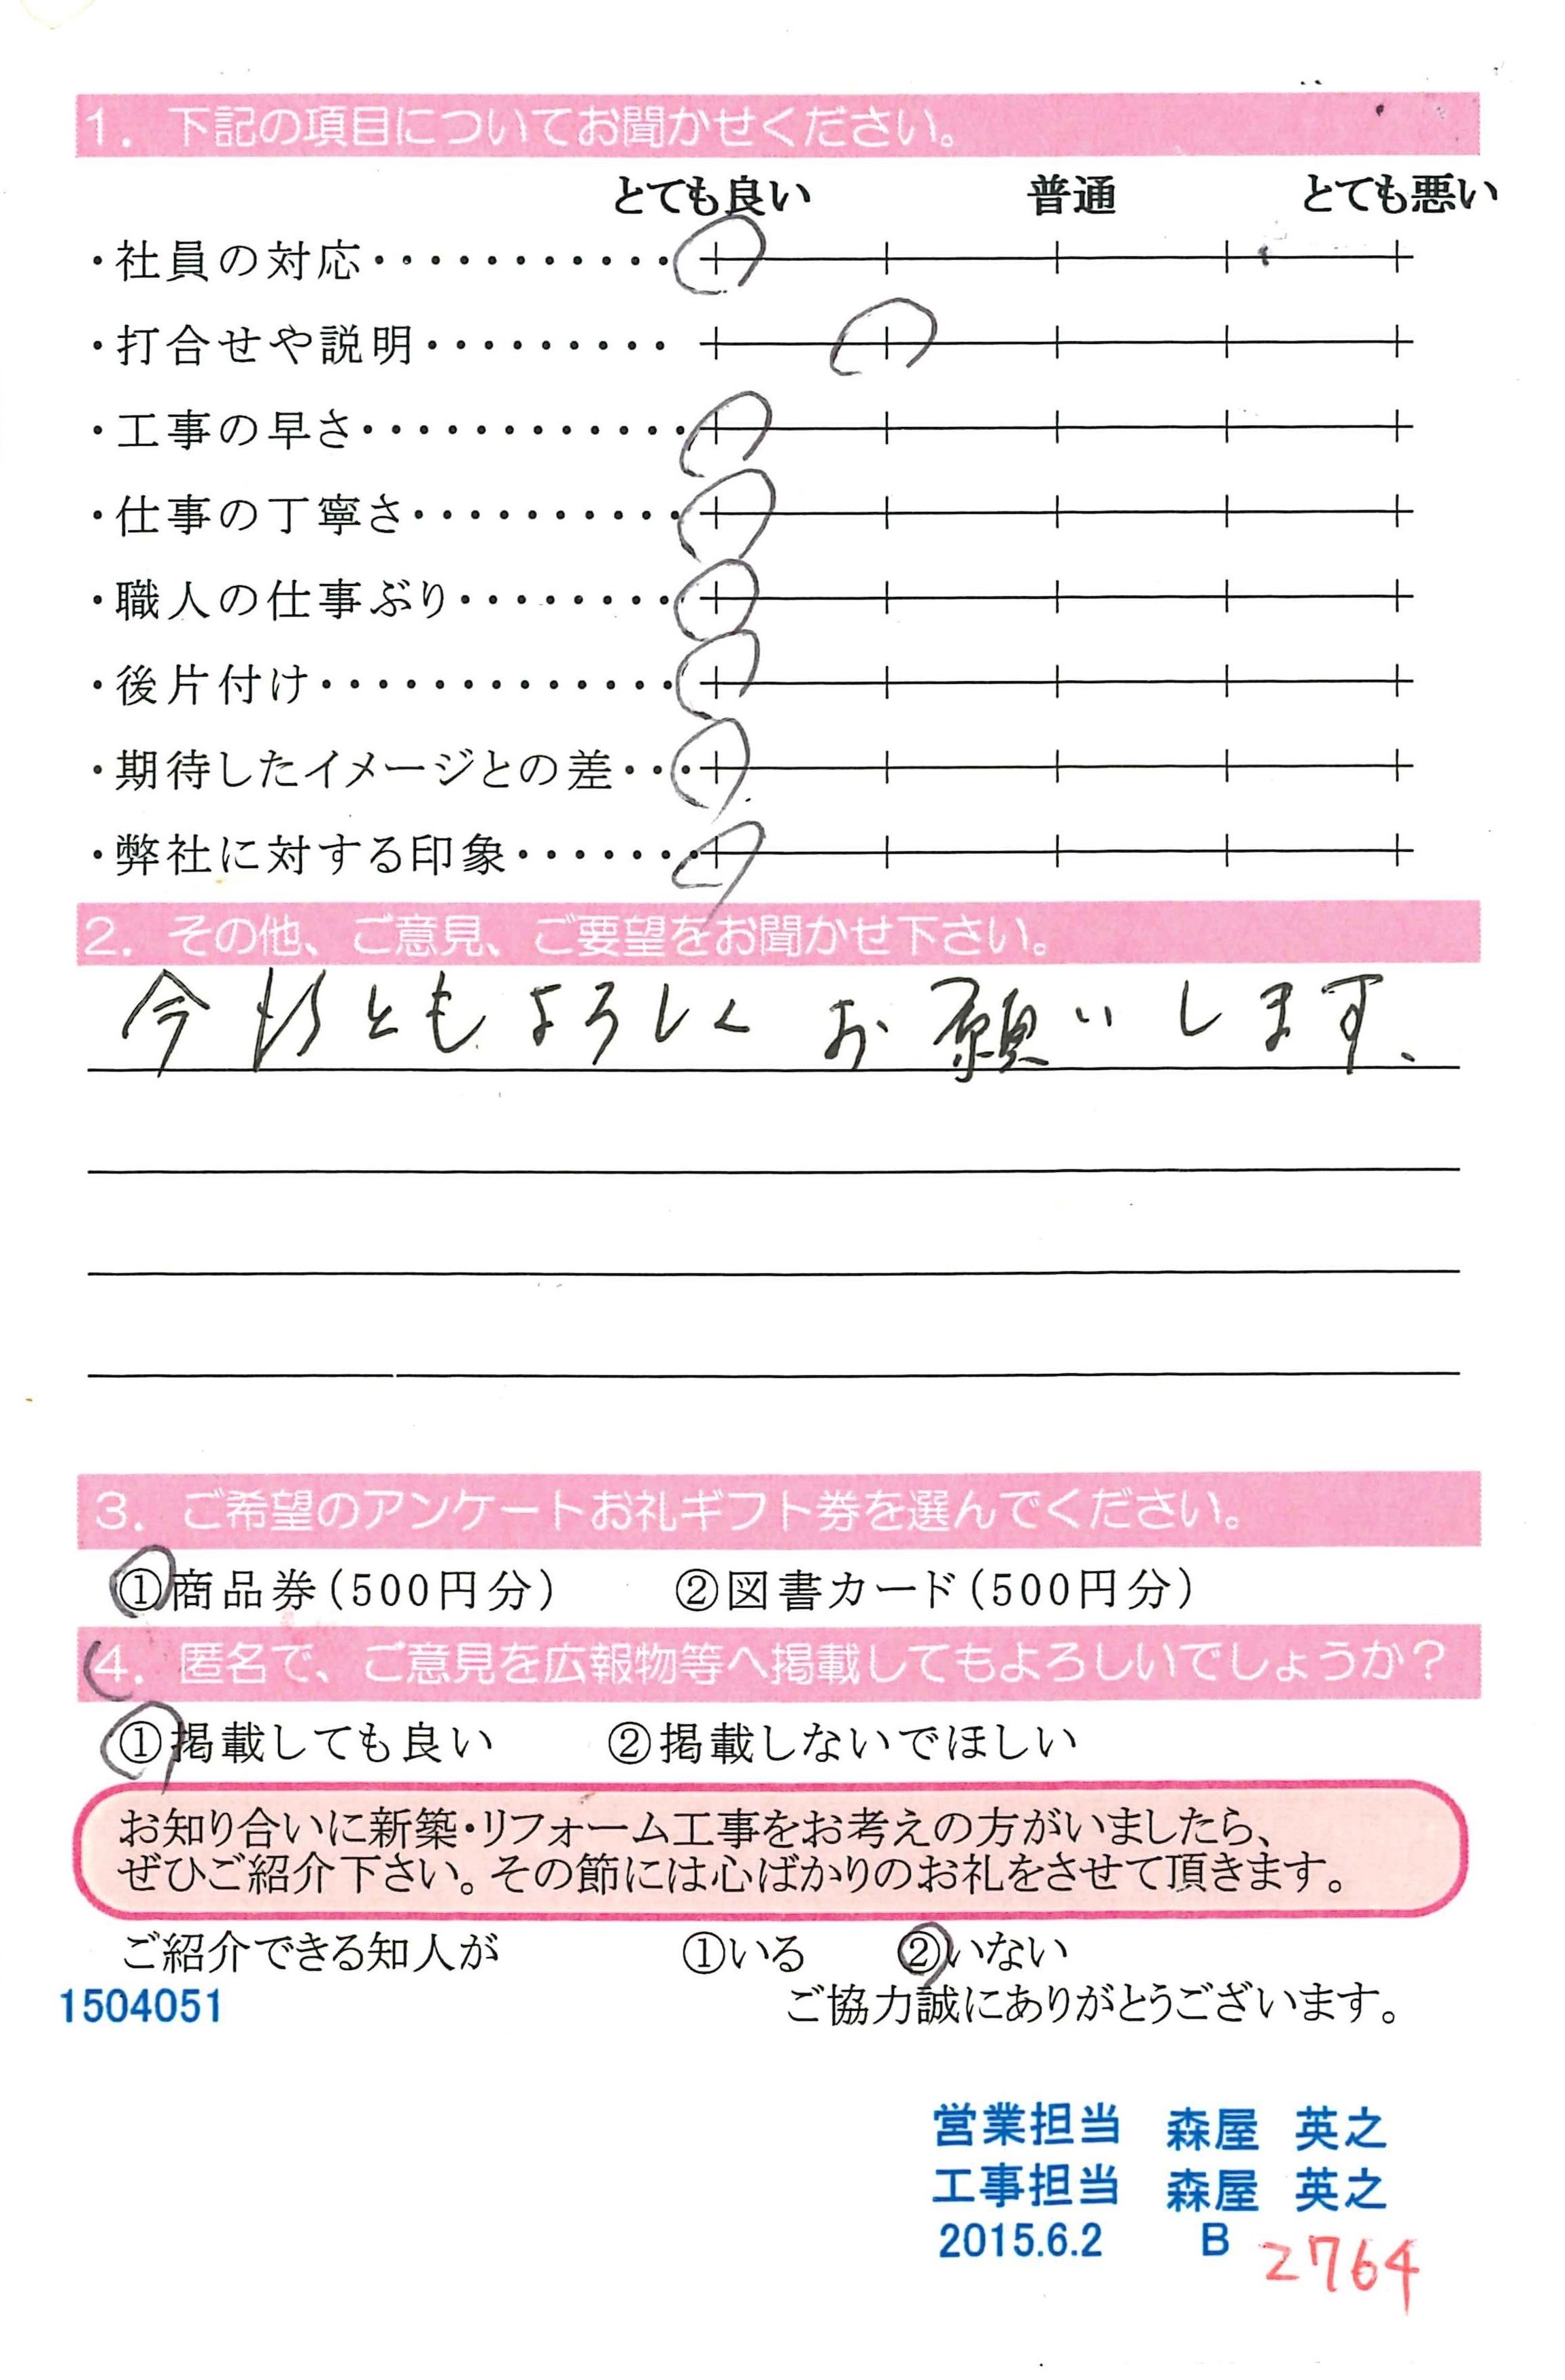 1. 下記の項目についてお聞かせください。
とても良い 普通 とても悪い
・社員の対応・・・・・・・・・・・
・打合せや説明・・・・・・・・・
・工事の早さ・・・・・・・・・・・・
・仕事の丁寧さ・・・・・・・・・・
・職人の仕事ぶり・・・・・・・・
・後片付け・・・・・・・・・・・・・
・期待したイメージとの差・・・
・弊社に対する印象・・・・・・・
2. その他、ご意見、ご要望をお聞かせ下さい。
今後ともよろしくお願いします、
3. ご希望のアンケートお礼ギフト券を選んでください。
①商品券(500円分) ②図書カード(500円分)
4. 匿名で、ご意見を広報物等へ掲載してもよろしいでしょうか?
①掲載しても良い ②掲載しないでほしい
お知り合いに新築・リフォーム工事をお考えの方がいましたら、
ぜひご紹介下さい。その節には心ばかりのお礼をさせて頂きます。
ご紹介できる知人が ①いる ②いない
1504051 ご協力誠にありがとうございます。
営業担当 森屋 英之
工事担当 森屋 英之
2015.6.2 B 2764